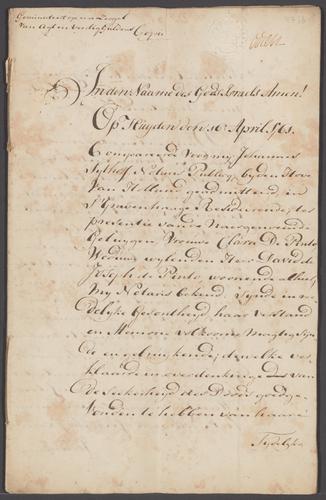 Geminuteert op een Zegel
van agt en veertig guldens
Copia
In den Naame des Gods Israels Amen!
Op Huyden den 16 April 1761.
Compareerde voor my Johannes
Sythoff Notaris Publicq, by den Hove
van Holland geadmitteerd, in
s'Gravenhage Resideerende, ter
presentie van de Naargenoemde
Getuygen, Vrouwe Clara De Pinto
Weduwe wylen den Heer David de
Joseph de Pinto, woonende alhier,
My Notaris bekend, Zynde in re-
delyke Gesontheyd, haar verstand
en Memorie volkoomen Magtig Zyn-
de en gebruykende, dewelke ver-
klaarde in overdenkinge van
de Seekerheyd des Doods goedge-
vonden te hebben van haare
Tydelyke